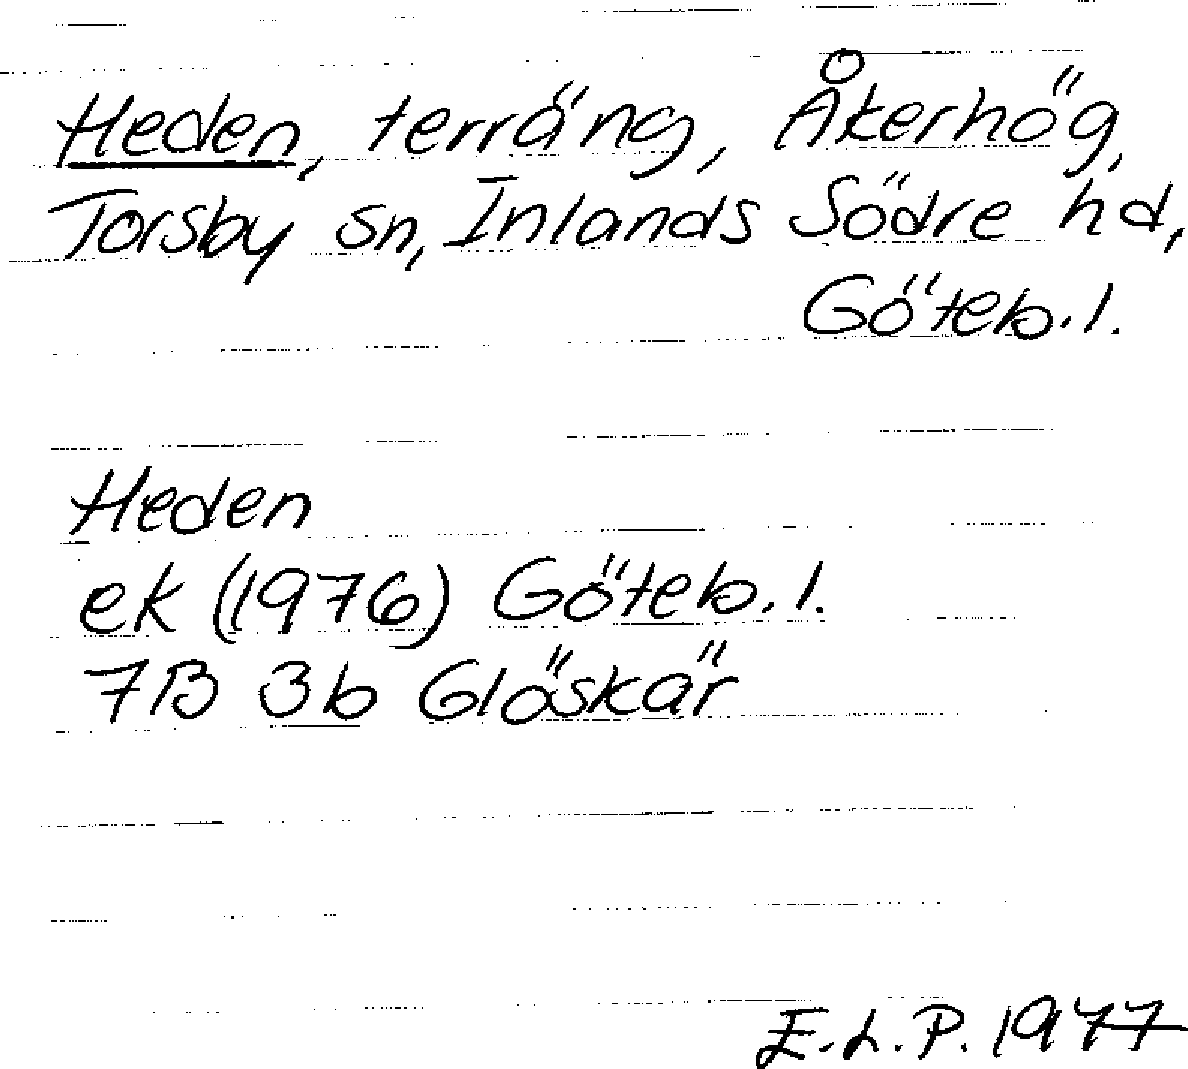 Heden, terräng, Åkerhög,
Torsby sn, Inlands Södre hd,
Göteb. l.
Heden
ek (1976) Göteb. l.
7B 3b Glöskär
E.L.P. 1977